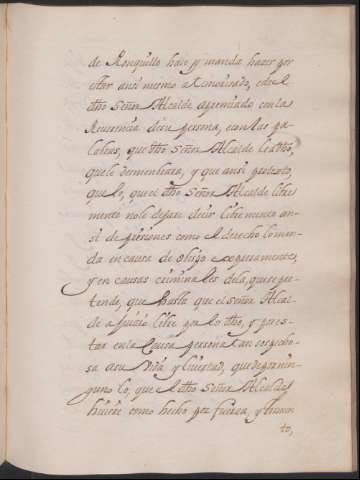 de Ronquillo hace y manda hacer por
estar ansi mesmo
dho Señor Alcalde apremiado con la
Reverencia de su persona, con las pa-
labras, que dho Señor Alcalde le a dho,
que le desmembrara, y que ansi protesto,
que lo, que el dho Señor Alcalde libre
mente no le dejare decir libremente an-
si de prisiones como el derecho lo man-
da en causa de obispo expresamente,
y en causas criminales dela, que se pre-
tende, que hasta que el señor Alcal-
de a juicio libre pa lo dho, y pues-
tar en la persona tan sospecho-
sa a su Vida y livertad, que de ganin-
guno lo, que el dho Señor Alcalde
huviere como hecho por fuerza, y
to,